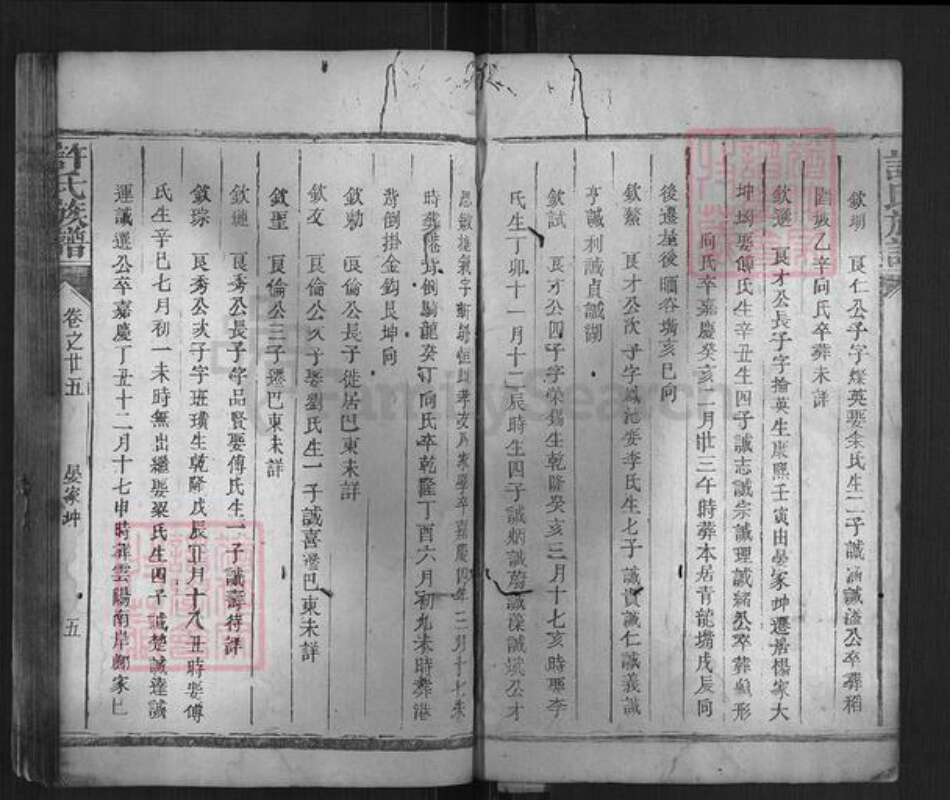 欽瑚 良仁公子字燦英娶余氏生二子誠涵誠溢公卒葬稻
坡乙辛向氏卒葬未詳
欽選 良才公長子字掄英生康熙壬寅由晏家坤遷居楊家大
坤塆娶傅氏生辛丑生四子誠志誠宗誠理誠緒公卒葬形
向氏卒嘉慶癸亥二月廿三午時葬本居青龍嘴戌辰向
後遷基後晒谷塝亥巳向
欽蔡 良才公次子字鳳池娶李氏生七子誠貴誠仁誠義誠
亨誠利誠貞誠湖
欽試 良才公四子字榮錫生乾隆癸亥三月十七亥時娶李
氏生丁卯十一月十二辰時生四子誠炳誠蔚誠深誠斌公才
思敏捷家卒嘉慶四年二月十七未
時葬港背倒騎龍癸丁向氏卒乾隆丁酉六月初九未時葬港
背倒掛金鈎艮坤向
欽勑 良倫公長子徙居巴東未詳
欽文 良倫公次子娶劉氏生一子誠喜遷巴東未詳
欽聖 良倫公三子遷巴東未詳
欽璉 良秀公長子字品賢娶傅氏生一子誠壽待詳
欽琮 良秀公次子字班璜生乾隆戊辰正月十八丑時娶傅
氏生辛巳七月初一未時無出繼娶梁氏生四子誠楚誠達誠
運誠選公卒嘉慶丁丑十二月十七申時葬雲陽南岸鄺家巴
許氏族譜 卷之廿五 晏家坤 五
許氏族譜